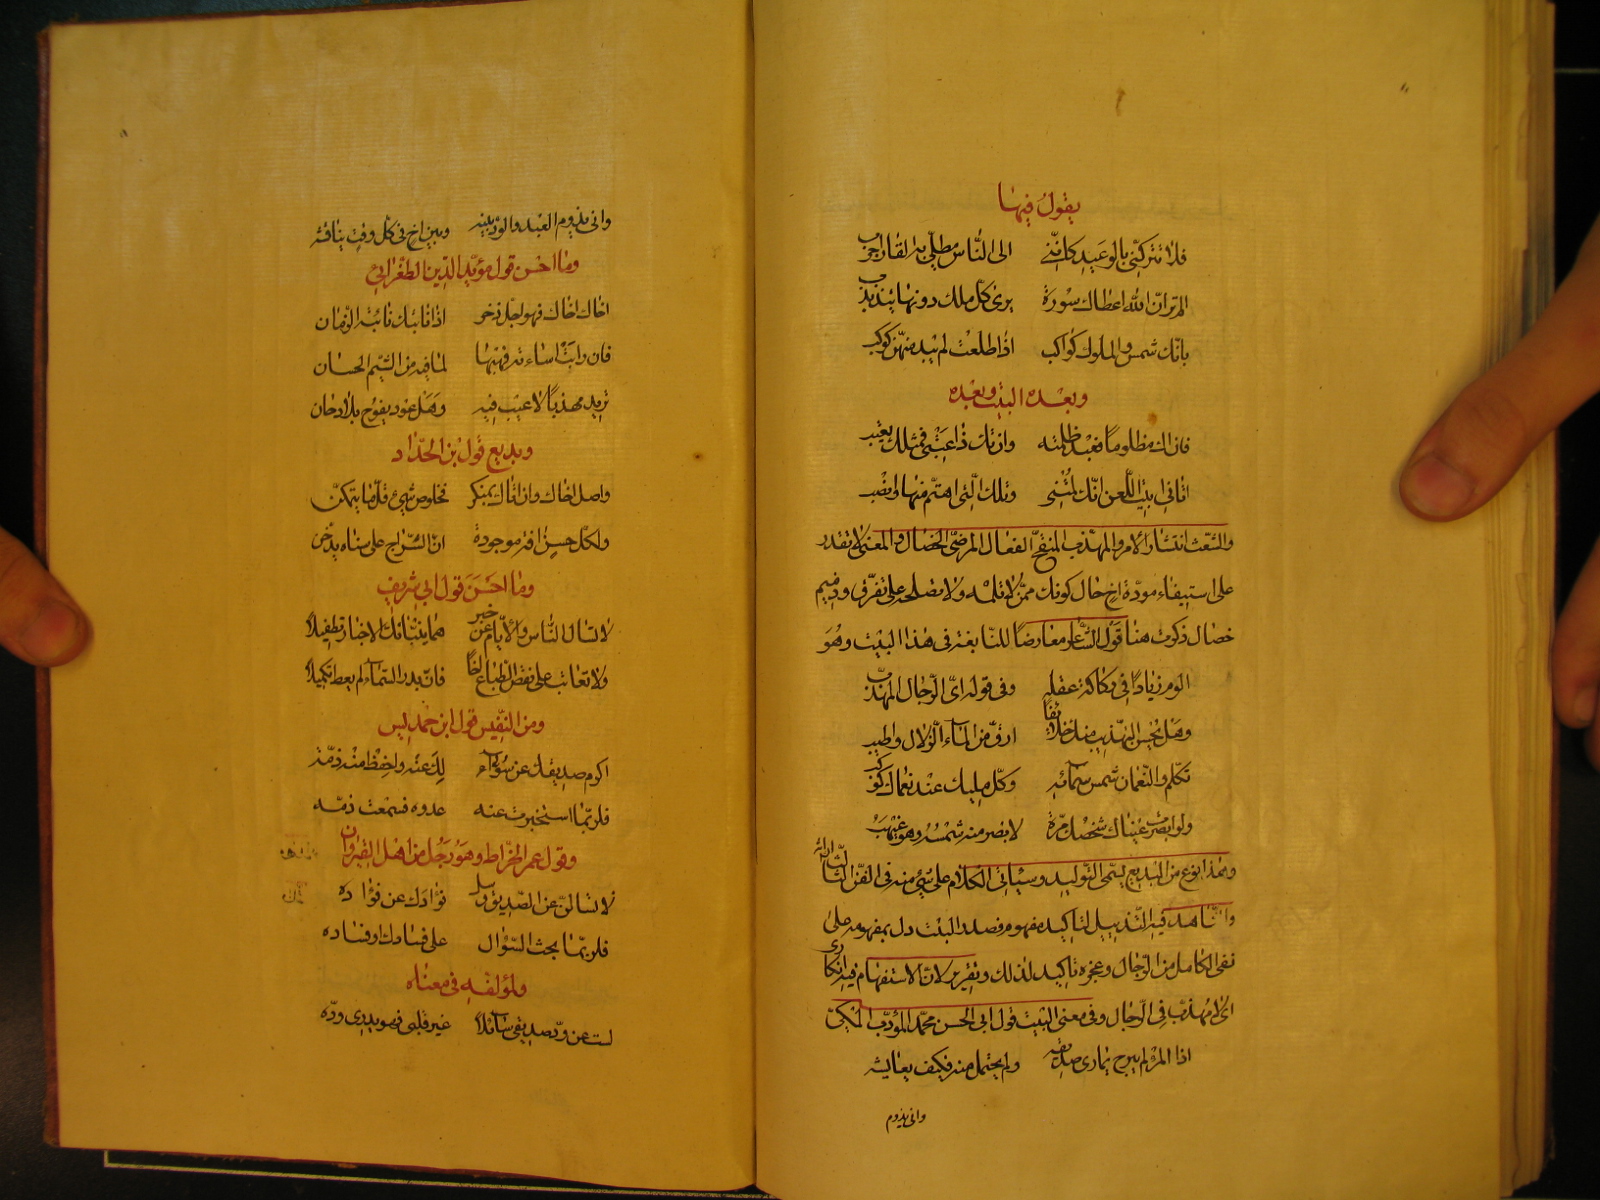 يقول فيها
فلا تتركنّي بالوعيد كانّني الى النّاس مطليّ به القار اجرب
الم تر انّ الله اعطاك سورة يرى كل ملك دونها يتذبذب
بانّك شمس والملوك كواكب اذا طلعت لم يبد منهنّ كوكب
وبعده البيت وبعده
فان اك مظلوما فعبد ظلمته وان تك ذا عتبى فمثلك يعتب
اتانى ابيت اللّعن انّك لمتنى وتلك الّتى اهتمّ منها وانصب
والشعث انتشار الامر والمهذب المنقح الفعال المرضىّ الخصال والمعنى لا تقدر
على استبقاء مودّة اخ حال كونك ممّن لا تلمه ولا تصلحه على تفرق وذميم
خصال ذكرت هنا قول الشاعر معارضا للنابغة فى هذا البيت وهو
الوم زيادا فى ركاكة عقله وفى قوله اىّ الرّجال المهذّب
وهل يحسن التهذيب منك خلائقا ارقّ من الماء الزّلال واطيب
تكلم والنّعمان شمس سمائه وكلّ مليك عند نعمان كوكب
ولو ابصرت عيناك شخصك مرّة لابصر منه شمسه وهو غيهب
وهذا نوع من البديع يسمى التّوليد وسياتى الكلام على شىء منه فى الفن الثالث
والشاهد فيه التذييل لتاكيد مفهوم فصدر البيت دل بمفهومه على
نفى الكامل من الرّجال وعجزه تاكيد لذلك وتقرير لانّ الاستفهام فيه انكارى
اى لا مهذّب فى الرّجال وفى معنى البيت قول ابى الحسن محمّد المؤدّب
اذا المرء لم يبرح يمارى صديقه ولم يحتمل منه فكيف يعايشه
وانى يدوم
وانى يدوم العهد والودّ بينه وبين اخ فى كل وقت يناقشه
وما احسن قول مؤيد الدّين الطغرائى
اخاك اخاك فهو اجلّ ذخر اذا نابتك نائبة الزّمان
فان رابت اساءته فهبها لما فيه من الشّيم الحسان
تريد مهذبا لا عيب فيه وهل عود يفوح بلا دخان
وبديع قول بن الحدّاد
واصل اخاك وان اتاك بمنكر فخلوص شىء قلّما يتمكّن
ولكل حسن آفة موجودة انّ السّراج على سناه يدخن
وما احسن قول ابى شريف
لا تسال النّاس والايّام عن خبر هما يبثّانك الاخبار تطفيلا
ولا تعاتب على نقص الطباع اخا فانّ بدر السّماء لم يعط تكميلا
ومن النّفيس قول ابن حمديس
اكرم صديقك عن سؤالك عنه واحفظ منه ذمّه
فلربّما استخبرت عنه عدوه فسمعت ذمّه
وقول عمر الخراط وهو رجل من اهل القيروان
لا تسالنّ عن الصّديق وسل فؤادك عن فؤاده
فلربّما بحث السّؤال على فسادك او فساده
ولمؤلفه فى معناه
لست عن ودّ صديقى سائلا غير قلبى فهو يدرى ودّه